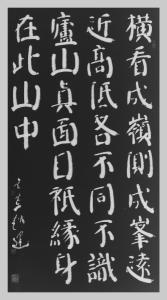 橫看成嶺側成峯遠
近髙低各不同不識
廬山真面目祇緣身
在此山中